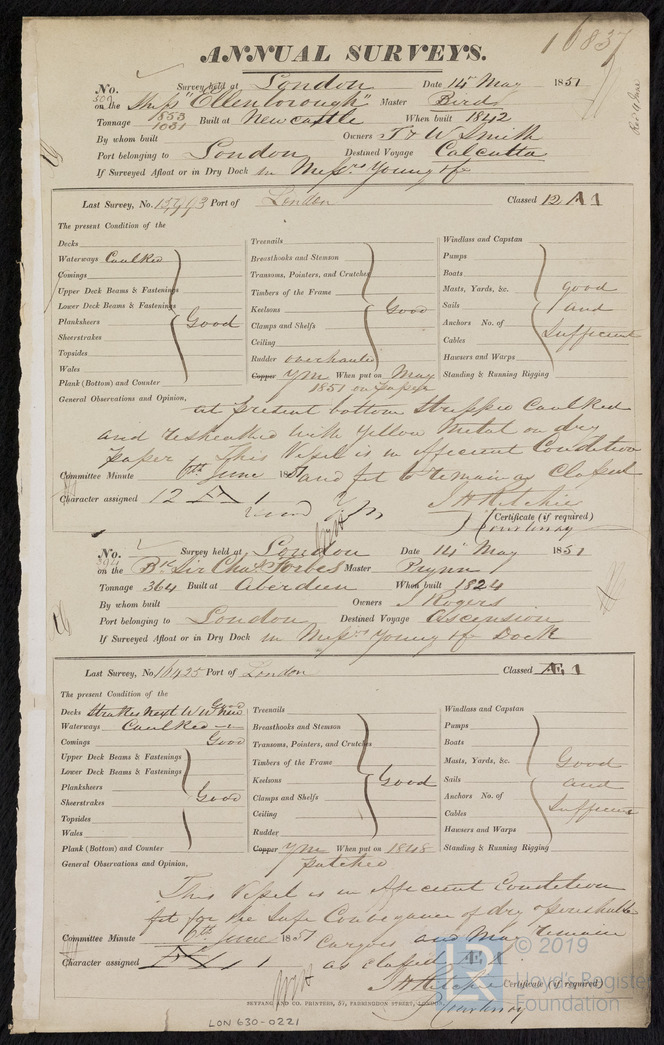 16837
ANNUAL SURVEYS.
No. Survey held at London Date 14 May 1851
on the Ship "Ellenborough" Master Bird
Tonnage 1031 Built at Newcastle When built 1842
By whom built Owners T & W Smith
Port belonging to London Destined Voyage Calcutta
If Surveyed Afloat or in Dry Dock in Messrs Young &
Last Survey, No. Port of London Classed 12 A 1
The present Condition of the
Decks Treenails Windlass and Capstan
Waterways Caulked Breasthooks and Stemson Pumps
Comings Transoms, Pointers, and Crutches Boats
Upper Deck Beams & Fastenings Timbers of the Frame Masts, Yards, &c. good
Lower Deck Beams & Fastenings Keelsons Good Sails and
Planksheers Good Clamps and Shelfs Anchors No. of Sufficient
Sheerstrakes Ceiling Cables
Topsides Rudder overhauled Hawsers and Warps
Wales Copper YM When put on May Standing & Running Rigging
Plank (Bottom) and Counter 1851 on paper
General Observations and Opinion, at present bottom stripped Caulked
and resheathed with yellow metal on dry
paper This Vessel is in efficient Condition
Committee Minute 6th June 1851 and fit to remain as Classed
Character assigned 12 A 1 J H Ritchie
Certificate (if required)
J Courtenay
No. Survey held at London Date 14 May 1851
on the Bk Sir Chas Forbes Master Prynn
Tonnage 364 Built at Aberdeen When built 1824
By whom built Owners J Rogers
Port belonging to London Destined Voyage Ascension
If Surveyed Afloat or in Dry Dock in Messrs Young & Dock
Last Survey, No. 16425 Port of London Classed Æ 1
The present Condition of the Good
Decks Strakes next W W New Treenails Windlass and Capstan
Waterways Caulked Breasthooks and Stemson Pumps
Comings Good Transoms, Pointers, and Crutches Boats
Upper Deck Beams & Fastenings Timbers of the Frame Masts, Yards, &c. Good
Lower Deck Beams & Fastenings Keelsons Good Sails and
Planksheers Good Clamps and Shelfs Anchors No. of Sufficient
Sheerstrakes Ceiling Cables
Topsides Rudder Hawsers and Warps
Wales Copper YM When put on 1848 Standing & Running Rigging
Plank (Bottom) and Counter patched
General Observations and Opinion,
This Vessel is in efficient Condition
fit for the Safe Conveyance of dry & perishable
Committee Minute 6th June 1851 Cargoes and May remain
Character assigned Æ 1 as classed Æ 1.
J H Ritchie Certificate (if required)
J Courtenay
SEYFANG AND CO. PRINTERS, 57, FARRINGDON STREET, LONDON
LON 630-0221
© 2019
Lloyd's Register
Foundation